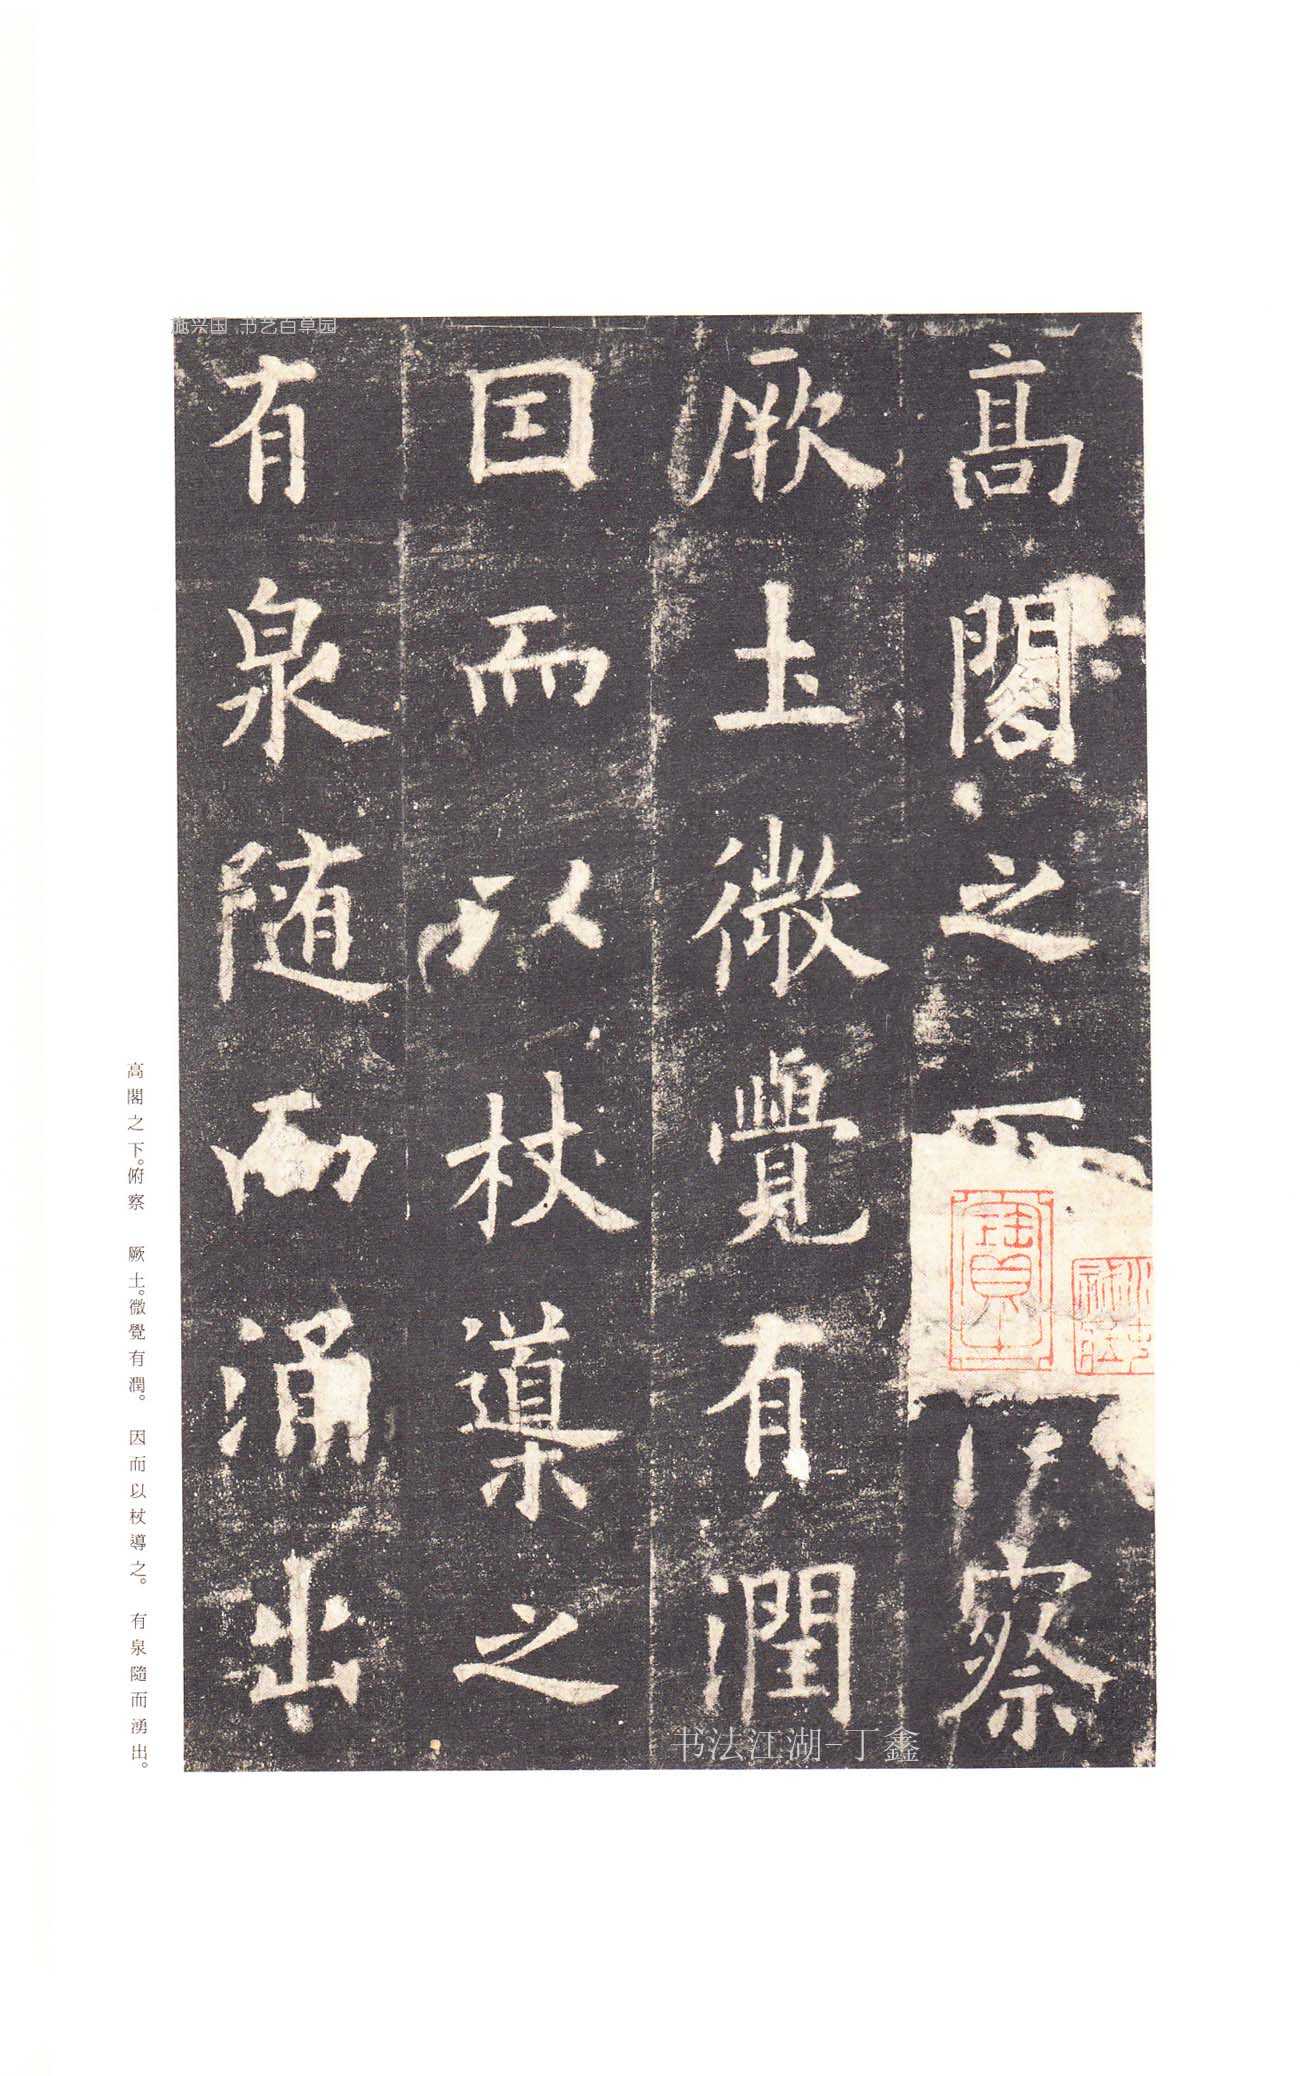 施兴国 书艺百草园
高閣之下俯察
厥土微覺有潤
因而以杖導之
有泉随而涌出
高閣之下。俯察 厥土。微覺有潤。 因而以杖導之。 有泉隨而湧出。
书法江湖-丁鑫